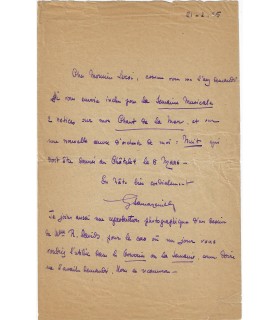 Cher Monsieur Leroi, comme vous me l'avez demandé
je vous envoie inclus pour la Semaine Musicale
2 notices sur mon Chant de la Mer, et sur
une nouvelle œuvre d'orchestre de moi : Nuit qui
doit être donnée au Châtelet le 8 Mars.
En hâte bien cordialement
G Samazeuilh
Je joins aussi une reproduction photographique d'un dessin
de Mme R. pour le cas où un jour vous
voudriez l'utiliser dans le ou la Semaine, comme
me l'avait demandé.